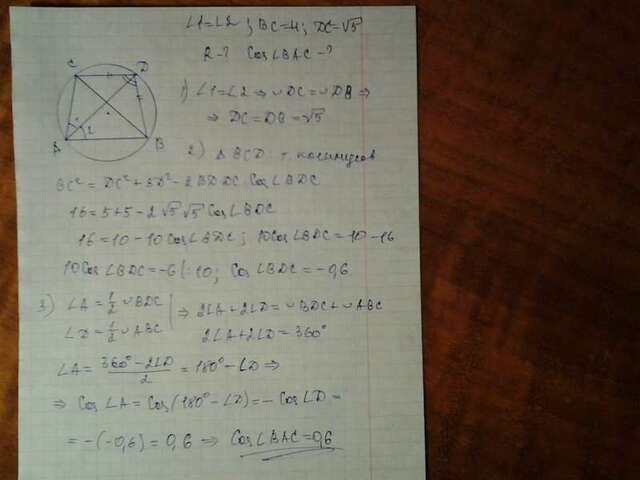 ∠1=∠2 ; BC=4; DC=√5
R-? Cos∠BAC-?
C D
1) ∠1=∠2 ⇒ ∪DC=∪DB ⇒
⇒ DC=DB=√5
A 2 B
2) Δ BCD: т. косинусов
BC²=DC²+BD²-2BD·DC·Cos∠BDC
16=5+5-2√5√5 Cos∠BDC
16=10-10Cos∠BDC; 10Cos∠BDC=10-16
10Cos∠BDC=-6|:10; Cos∠BDC=-0,6
3) ∠A=1/2 ∪BDC
∠D=1/2 ∪ABC | ⇒ 2∠A+2∠D=∪BDC+∪ABC
2∠A+2∠D=360°
∠A=(360°-2∠D)/2=180°-∠D ⇒
⇒ Cos∠A=Cos(180°-∠D)=-Cos∠D=
=-(-0,6)=0,6 ⇒ Cos∠BAC=0,6